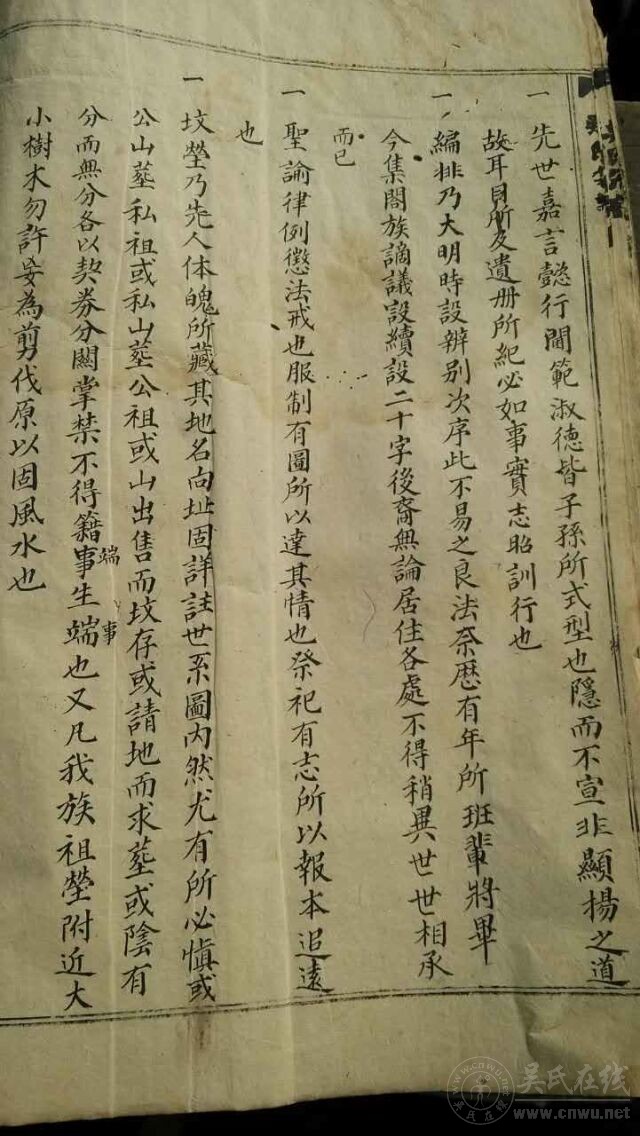 一 先世嘉言懿行閫範淑德皆子孫所式型也隱而不宣非顯揚之道
故耳目所及遺册所紀必如事實志昭訓行也
一 編排乃大明時設辨别次序此不易之良法奈歷有年所班輩將畢
今集閤族謫議設續設二十字後裔無論居住各處不得稍異世世相承
而已
一 聖諭律例懲法戒也服制有圖所以達其情也祭祀有志所以報本追遠
也
一 坟塋乃先人体魄所藏其地名向址固詳註世系圖内然尤有所必慎或
公山塟私祖或私山塟公祖或山出售而坟存或請地而求塟或陰有
分而無分各以契券分關掌禁不得籍事生端也又凡我族祖塋附近大
端 事
小樹木勿許妄為剪伐原以固風水也
吴氏在线
www.cnwu.net